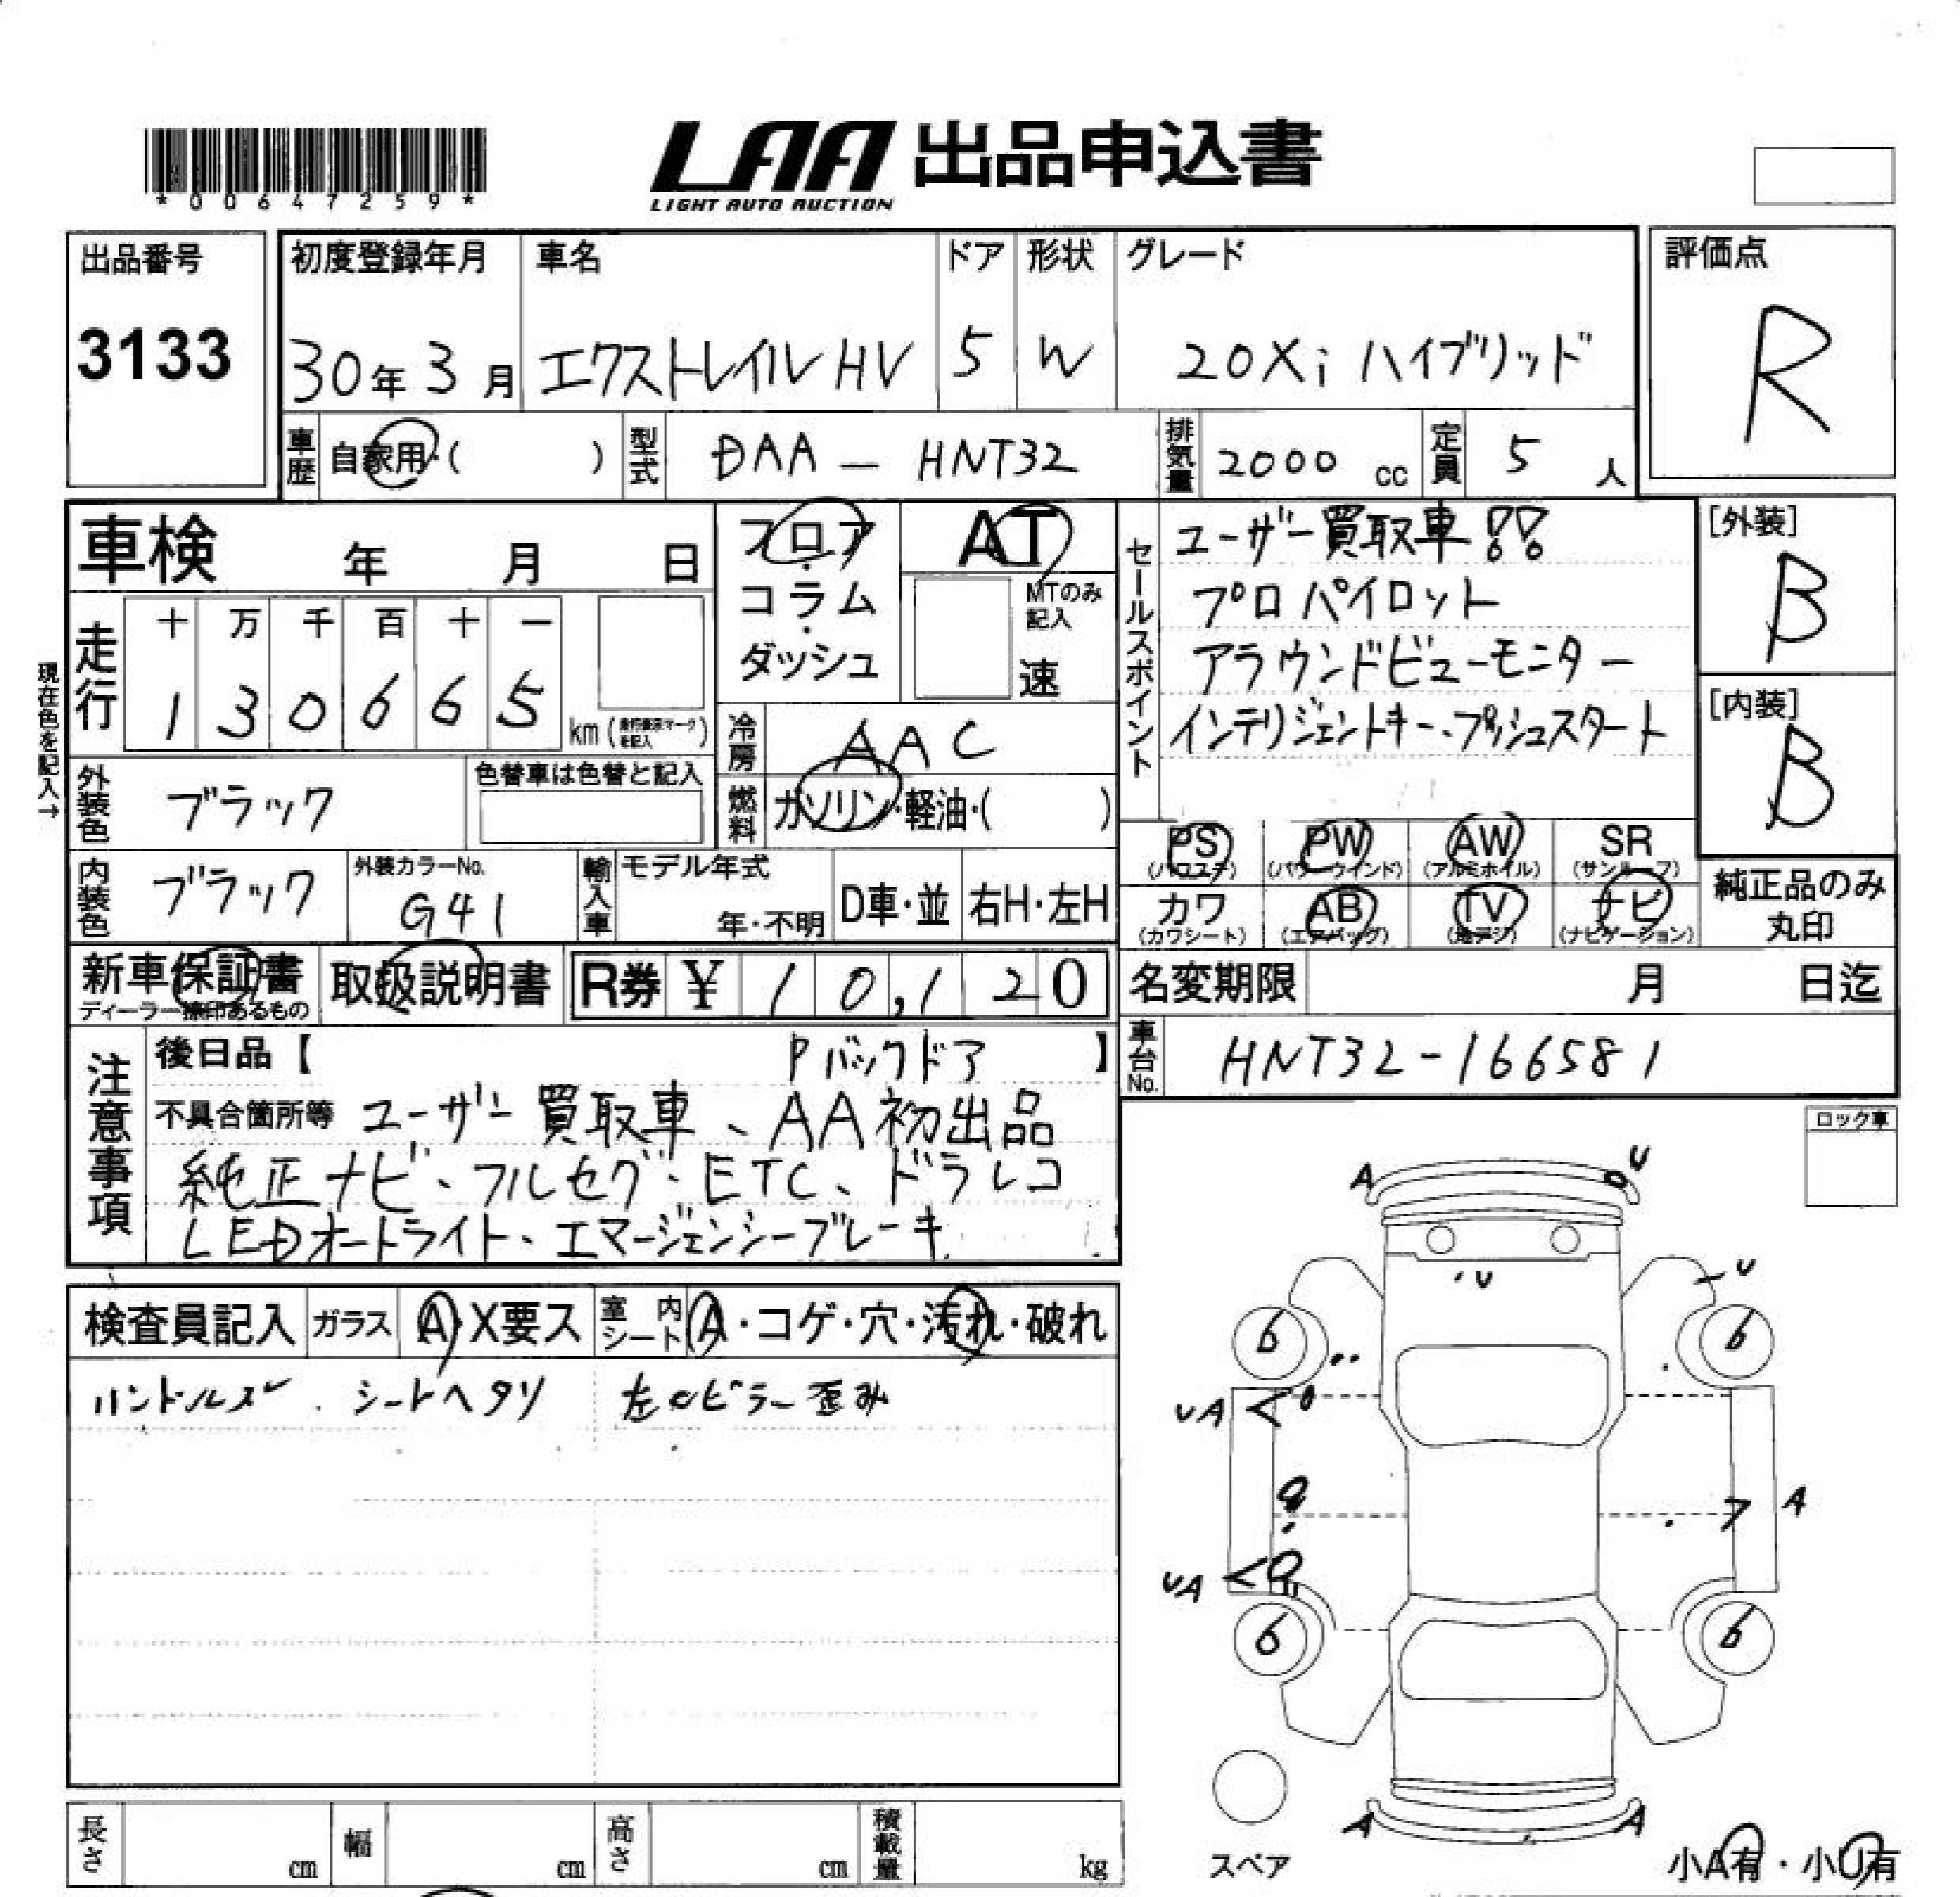 *00647259*
LAA 出品申込書
LIGHT AUTO AUCTION
出品番号
3133
初度登録年月 車名 ドア 形状 グレード
30年 3月 エクストレイル HV 5 W 20Xi ハイブリッド
評価点
R
車歴 自家用・( ) 型式 DAA - HNT32 排気量 2000 cc 定員 5 人
車検 年 月 日
フロア・コラム・ダッシュ
AT
MTのみ記入
速
セールスポイント
ユーザー買取車!!
プロパイロット
アラウンドビューモニター
インテリジェントキー、プッシュスタート
[外装]
B
[内装]
B
現在色を記入→
走行 十 万 千 百 十 一
1 3 0 6 6 5 km
冷房 AAC
燃料 ガソリン・軽油・( )
外装色 ブラック 色替車は色替と記入
内装色 ブラック 外装カラーNo. G41
輸入車 モデル年式 年・不明 D車・並 右H・左H
PS (パワステ) PW (パワーウインド) AW (アルミホイル) SR (サンルーフ)
カワ (カワシート) AB (エアバッグ) TV (地デジ) ナビ (ナビゲーション)
純正品のみ丸印
新車保証書 ディーラー捺印あるもの 取扱説明書 R券 ¥ 10,120
名変期限 月 日迄
車台No. HNT32-166581
注意事項
後日品【 Pバックドア 】
不具合箇所等 ユーザー買取車、AA初出品
純正ナビ、フルセグ、ETC、ドラレコ
LEDオートライト、エマージェンシーブレーキ
ロック車
検査員記入 ガラス A・X要ス 室内シート A・コゲ・穴・汚れ・破れ
ハンドルスレ シートヘタリ 左Cピラー歪み
A U
U U
6 6
UA
A
UA
6 6
A A
スペア
小A有・小U有
長さ cm 幅 cm 高さ cm 積載量 kg